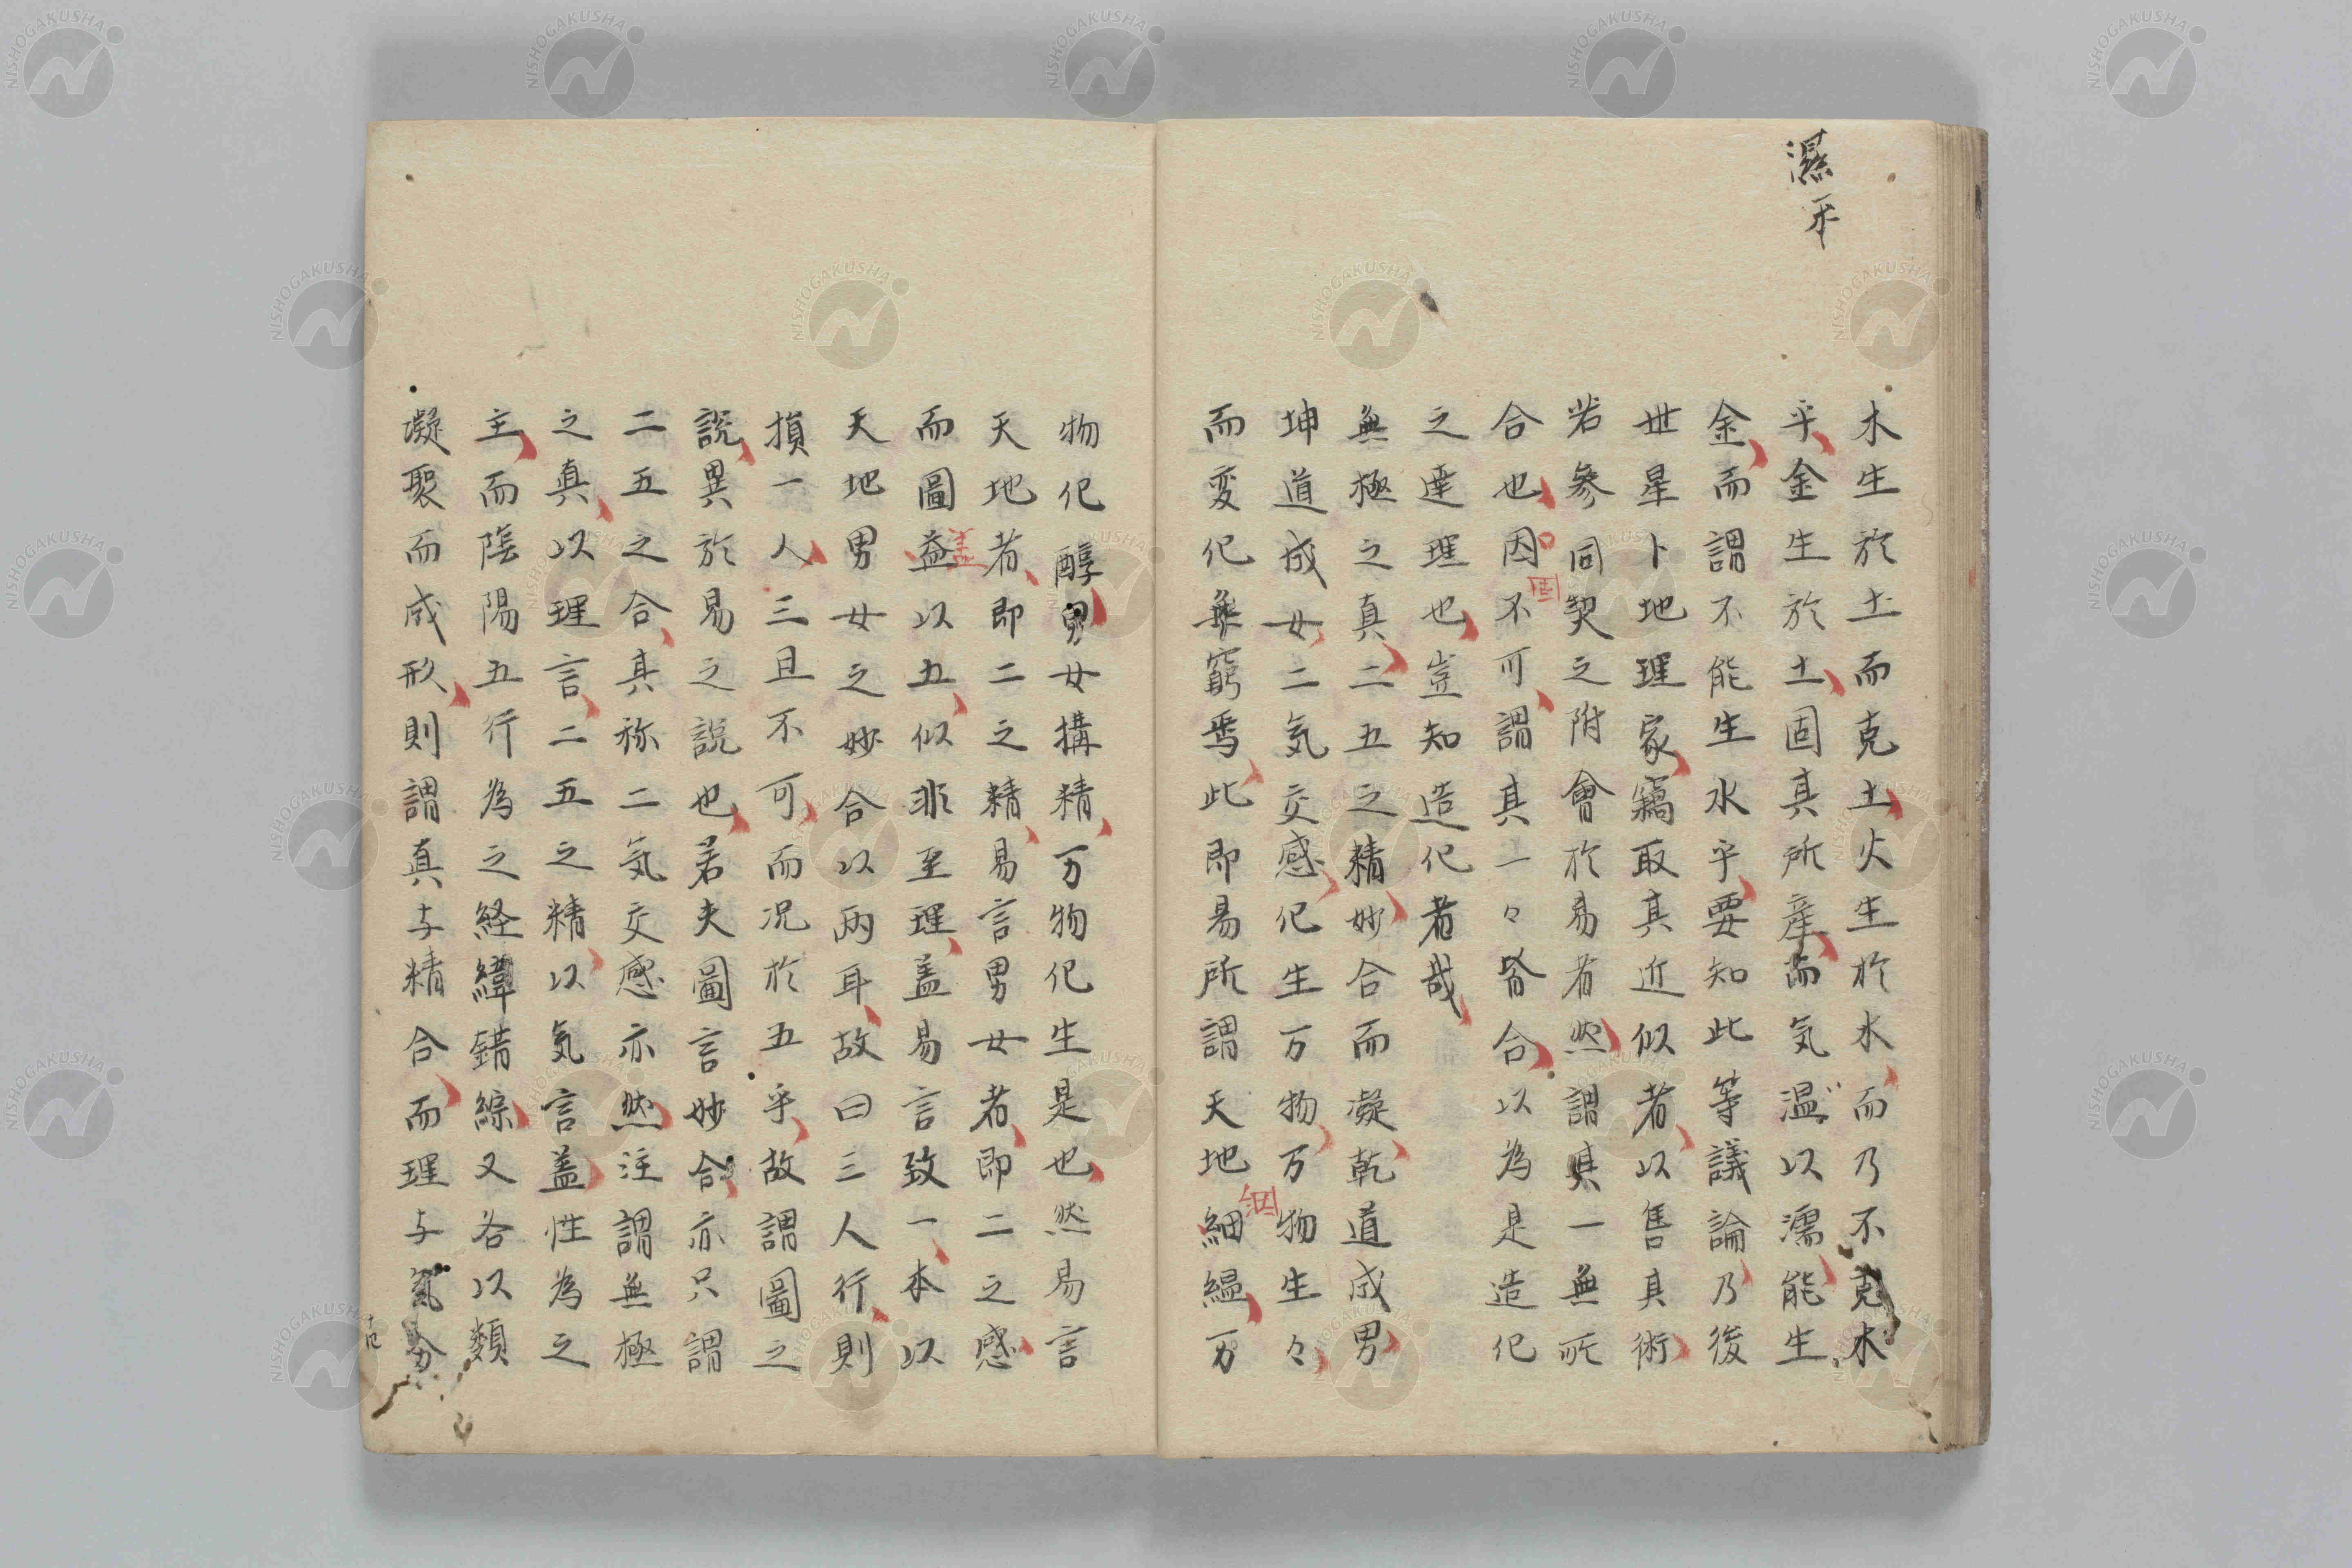 濕乎
木生於土而克土火生於水而乃不克水
乎金生於土固其所産而気温以濡能生
金而謂不能生水乎要知此等議論乃後
世星卜地理家竊取其近似者以售其術
若參同契之附會於易者然謂其一無所
合也因不可謂其一々皆合以為是造化
固
之達理也豈知造化者哉
無極之真二五之精妙合而凝乾道成男
坤道成女二気交感化生万物万物生々
而変化無窮焉此即易所謂天地細縕万
絪
物化醇男女搆精万物化生是也然易言
天地者即二之精易言男女者即二之感
而圖益以五似非至理盖易言致一本以
盖
天地男女之妙合以両耳故曰三人行則
損一人三且不可而况於五乎故謂圖之
説異於易之説也若夫圖言妙合亦只謂
二五之合其称二気交感亦然注謂無極
之真以理言二五之精以気言盖性為之
主而陰陽五行為之経緯錯綜又各以類
凝聚而成形則謂真与精合而理与気分
NISHOGAKUSHA